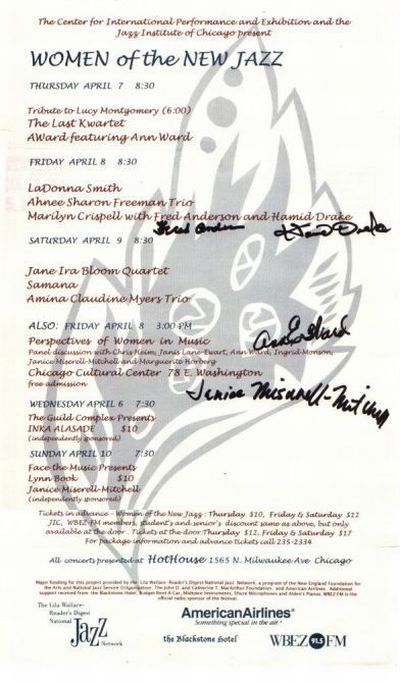 The Center for International Performance and Exhibition and the
Jazz Institute of Chicago present
WOMEN of the NEW JAZZ
THURSDAY APRIL 7 8:30
Tribute to Lucy Montgomery (6:00)
The Last Kwartet
AWard featuring Ann Ward
FRIDAY APRIL 8 8:30
LaDonna Smith
Ahnee Sharon Freeman Trio
Marilyn Crispell with Fred Anderson and Hamid Drake
Fred Anderson Hamid Drake
SATURDAY APRIL 9 8:30
Jane Ira Bloom Quartet
Samana
Amina Claudine Myers Trio
ALSO: FRIDAY APRIL 8 3:00 PM
Perspectives of Women in Music
Ann E. Ward
Panel discussion with Chris Heim, Janis Lane-Ewart, Ann Ward, Ingrid Monson,
Janice Miserell-Mitchell and Marguerite Horberg
Chicago Cultural Center 78 E. Washington
free admission
Janice Misurell-Mitchell
WEDNESDAY APRIL 6 7:30
The Guild Complex Presents
INKA ALASADE $10
(independently sponsored)
SUNDAY APRIL 10 7:30
Face the Music Presents
Lynn Book $10
Janice Miserell-Mitchell
(independently sponsored)
Tickets in advance - Women of the New Jazz : Thursday $10, Friday & Saturday $12
JIC, WBEZ-FM members, student's and senior's discount same as above, but only
available at the door . Tickets at the door: Thursday $12, Friday & Saturday $17
For package information and advance tickets call 235-2334
All concerts presented at HotHouse 1565 N. Milwaukee Ave Chicago
Major funding for this project provided by the Lila Wallace- Reader's Digest National Jazz Network, a program of the New England Foundation for
the Arts and National Jazz Service Organization. The John D. and Catherine T. MacArthur Foundation, and American Airlines. Additional
support received from the Blackstone Hotel, Budget Rent A Car, Midwest Instruments, Shure Microphones and Alden's Pianos. WBEZ-FM is the
official radio sponsor of the festival.
The Lila Wallace-
Reader's Digest
National Jazz Network
AmericanAirlines®
Something special in the air.®
the Blackstone Hotel
WBEZ 91.5 FM